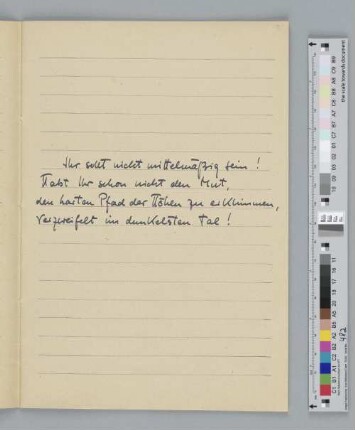 Ihr sollt nicht mittelmäßig sein!
Habt Ihr schon nicht den Mut,
den harten Pfad der Höhen zu erklimmen,
verzweifelt im dunkelsten Tal!
482